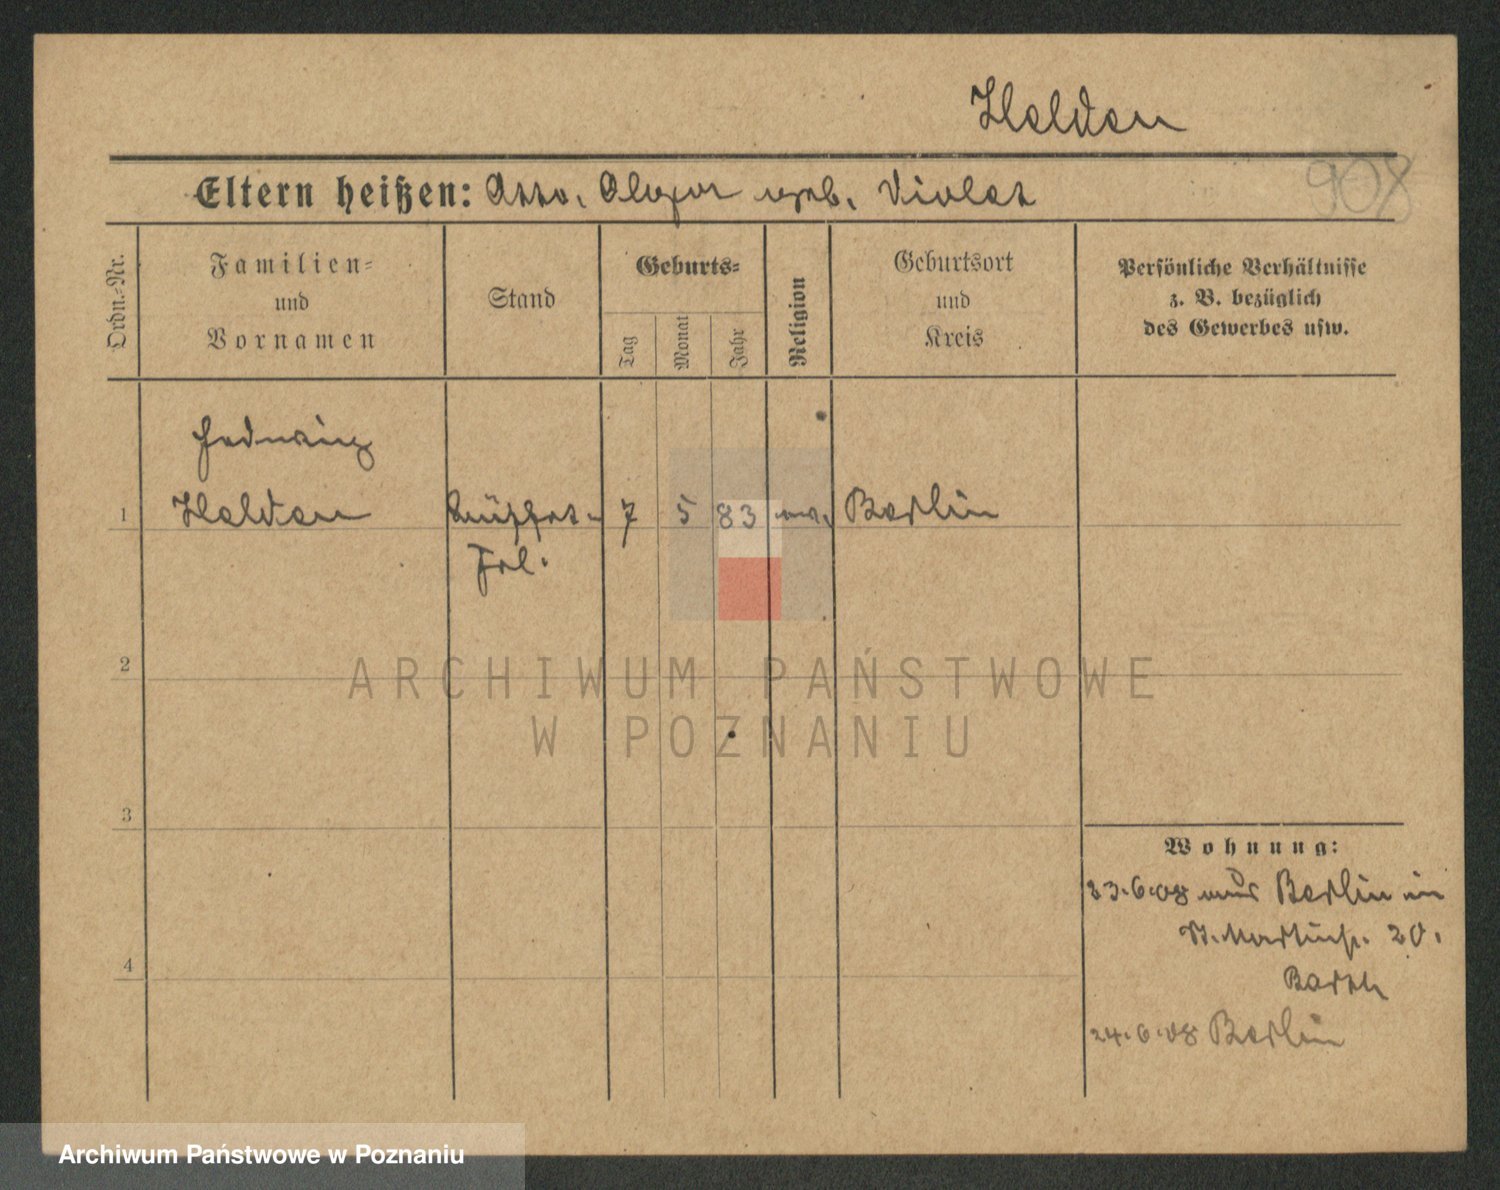 Helden
908
Eltern heißen: Otto, geb. Violet
Ordn.-Nr.
Familien-
und
Vornamen
Stand
Geburts-
Tag
Monat
Jahr
Religion
Geburtsort
und
Kreis
Persönliche Verhältnisse
z. B. bezüglich
des Gewerbes usw.
Hedwig
1 Helden Büffet- 7 5 83 ev. Berlin
Frl.
2
3
4
Wohnung:
23.6.08 aus Berlin in
St. Martinstr. 20.
Barth
24.6.08 Berlin
ARCHIWUM PAŃSTWOWE
W POZNANIU
Archiwum Państwowe w Poznaniu